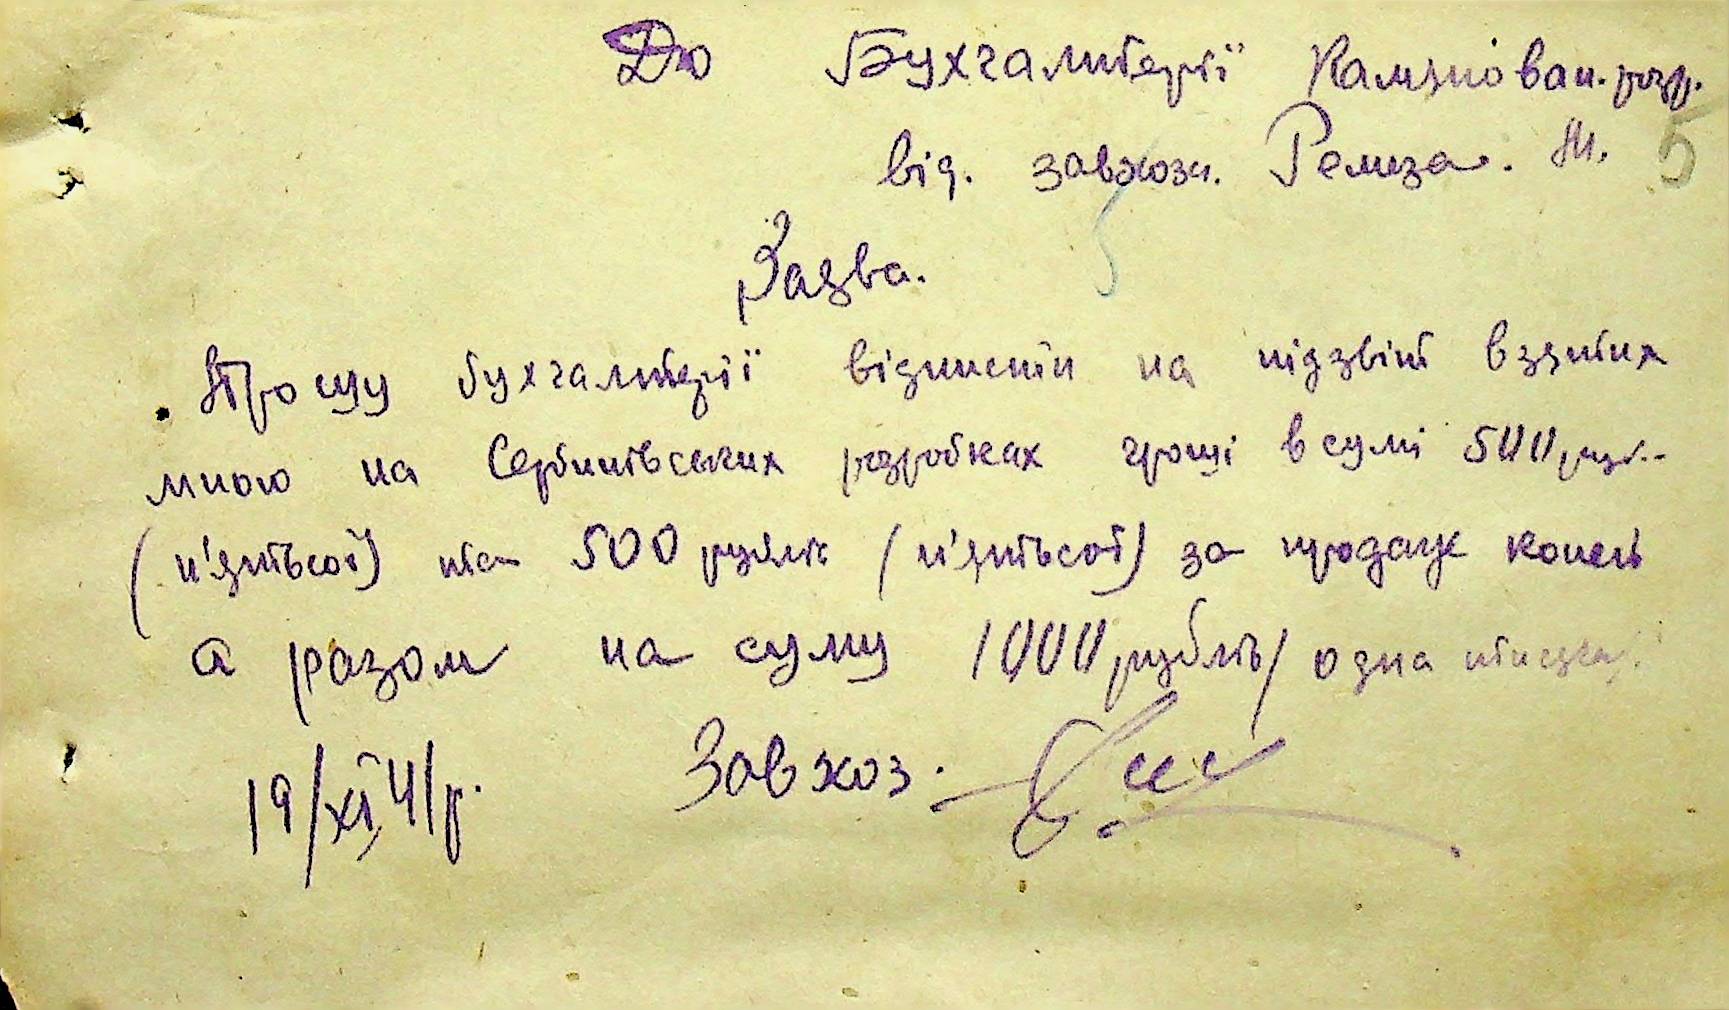 До Бухгалтерії Камянован. розр.
від. завхоза. Ремеза. М. 5
Заява.
Прошу бухгалтерії відписати на підзвіт взятих
мною на Сербинівських розробках гроші в сумі 500 руб.
(п'ятьсот) та 500 рублів (п'ятьсот) за продаж конев
а разом на суму 1000 рублів / одна тисяча/.
19/XI 41 р. Завхоз.